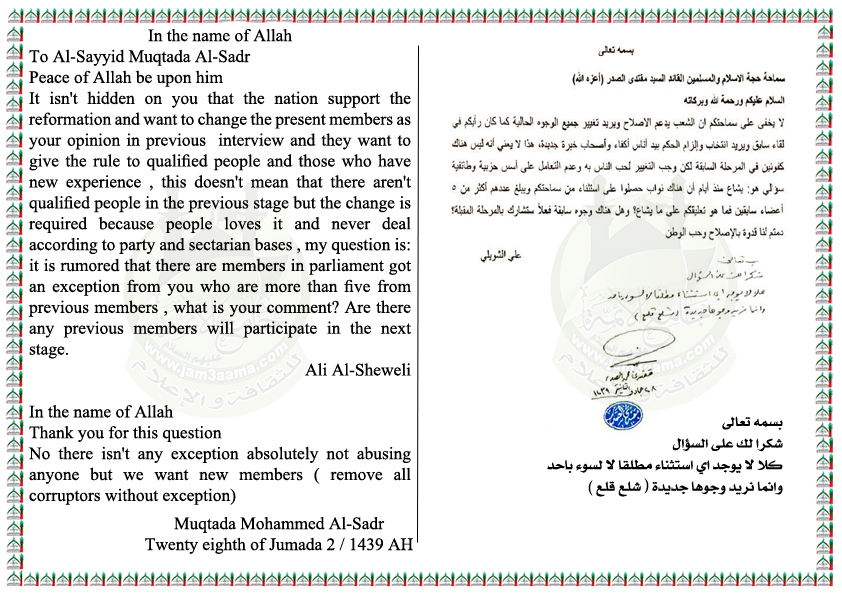 In the name of Allah
To Al-Sayyid Muqtada Al-Sadr
Peace of Allah be upon him
It isn't hidden on you that the nation support the
reformation and want to change the present members as
your opinion in previous interview and they want to
give the rule to qualified people and those who have
new experience , this doesn't mean that there aren't
qualified people in the previous stage but the change is
required because people loves it and never deal
according to party and sectarian bases , my question is:
it is rumored that there are members in parliament got
an exception from you who are more than five from
previous members , what is your comment? Are there
any previous members will participate in the next
stage.
Ali Al-Sheweli
In the name of Allah
Thank you for this question
No there isn't any exception absolutely not abusing
anyone but we want new members ( remove all
corruptors without exception)
Muqtada Mohammed Al-Sadr
Twenty eighth of Jumada 2 / 1439 AH
بسمه تعالى
سماحة حجة الاسلام والمسلمين القائد السيد مقتدى الصدر (أعزه الله)
السلام عليكم ورحمة الله وبركاته
لا يخفى على سماحتكم ان الشعب يدعم الاصلاح ويريد تغيير جميع الوجوه الحالية كما كان رأيكم في
لقاء سابق ويريد انتخاب وإلزام الحكم بيد أناس أكفاء وأصحاب خبرة جديدة، هذا لا يعني أنه ليس هناك
كفوئين في المرحلة السابقة لكن وجب التغيير لحب الناس به وعدم التعامل على أسس حزبية وطائفية
سؤالي هو: يشاع منذ أيام أن هناك نواب حصلوا على استثناء من سماحتكم ويبلغ عددهم أكثر من ٥
أعضاء سابقين فما هو تعليقكم على ما يشاع؟ وهل هناك وجوه سابقة فعلاً ستشارك بالمرحلة المقبلة؟
دمتم لنا قدوة بالإصلاح وحب الوطن
علي الشويلي
بسمه تعالى
شكرا لك على السؤال
كلا لا يوجد اي استثناء مطلقا لا لسوء باحد
وانما نريد وجوها جديدة ( شلع قلع )
مقتدى محمد الصدر
٢٨ جمادي الثانية ١٤٣٩
بسمه تعالى
شكرا لك على السؤال
كلا لا يوجد اي استثناء مطلقا لا لسوء باحد
وانما نريد وجوها جديدة ( شلع قلع )
www.jam3aama.com
للثقافة والاعلام
www.jam3aama.com
للثقافة والاعلام